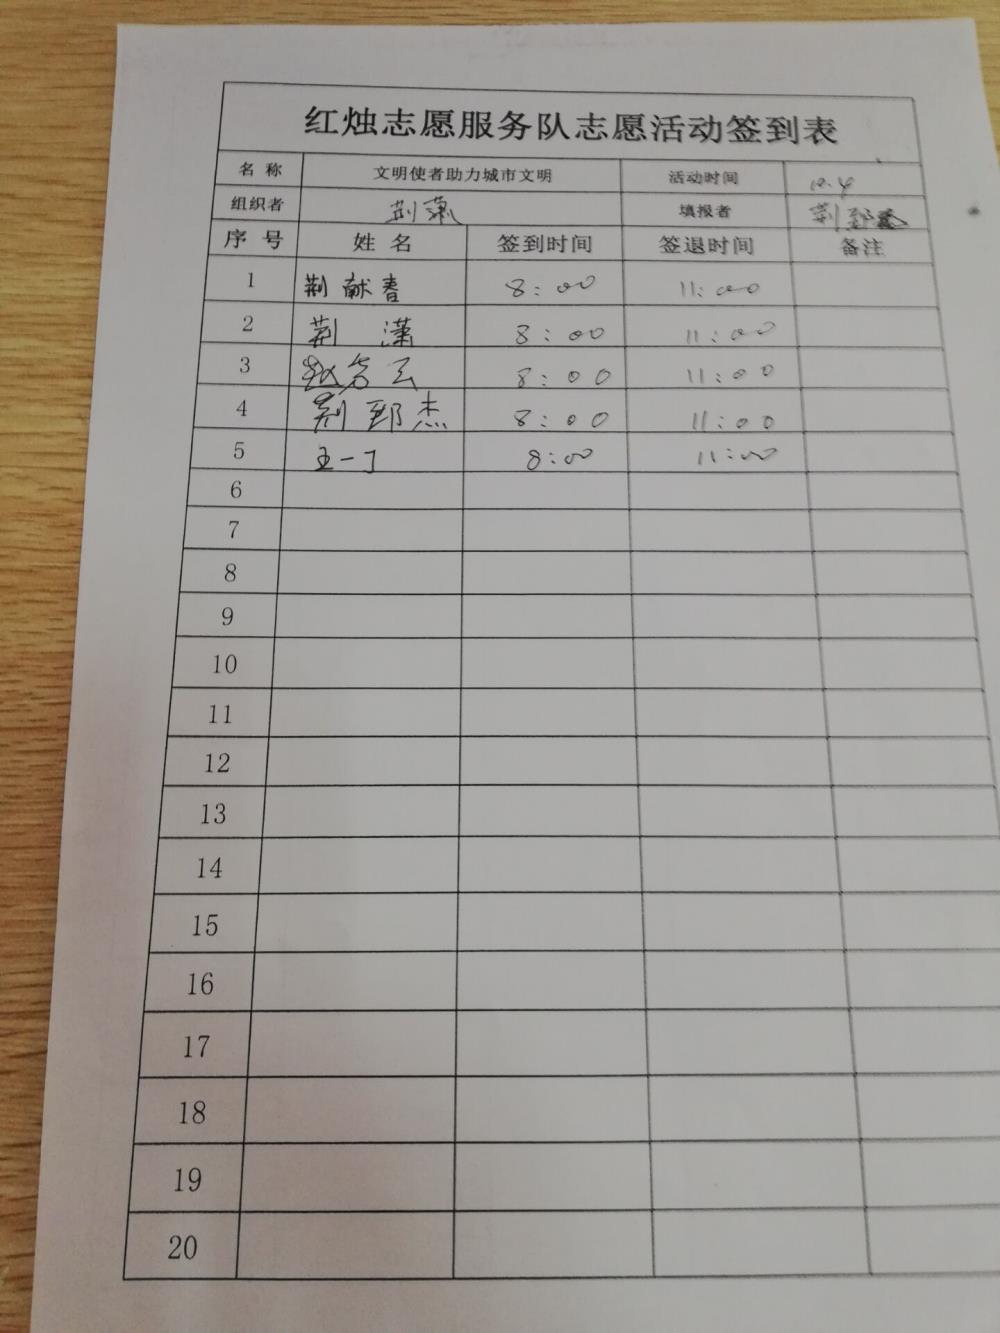 红烛志愿服务队志愿活动签到表
名 称 文明使者助力城市文明 活动时间 10.4
组织者 荆潇 填报者 荆郅杰
序 号 姓 名 签到时间 签退时间 备注
1 荆献春 8:00 11:00
2 荆 潇 8:00 11:00
3 赵芳云 8:00 11:00
4 荆郅杰 8:00 11:00
5 王一丁 8:00 11:00
6
7
8
9
10
11
12
13
14
15
16
17
18
19
20